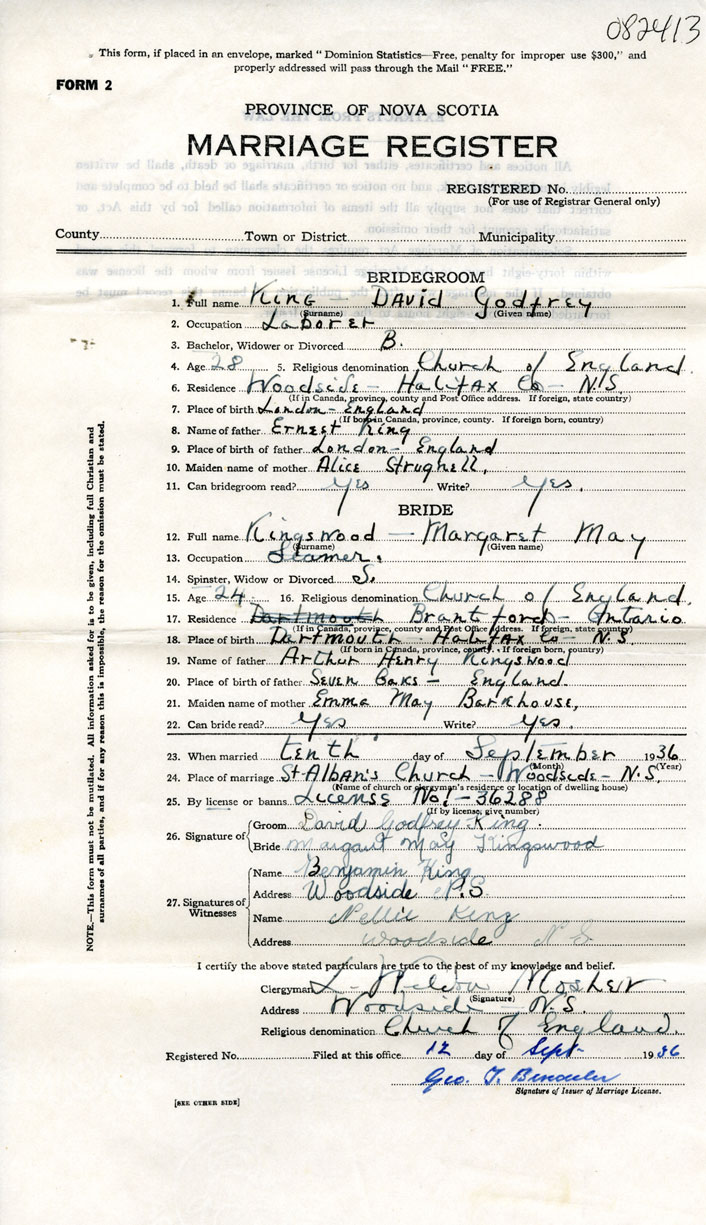 082413
This form, if placed in an envelope, marked "Dominion Statistics—Free, penalty for improper use $300," and
properly addressed will pass through the Mail "FREE."
FORM 2
PROVINCE OF NOVA SCOTIA
MARRIAGE REGISTER
REGISTERED No.
(For use of Registrar General only)
County Town or District Municipality
BRIDEGROOM
1. Full name King — David Godfrey
(Surname) (Given name)
2. Occupation Laborer
3. Bachelor, Widower or Divorced B.
4. Age 28 5. Religious denomination Church of England.
6. Residence Woodside — Halifax Co — N.S.
(If in Canada, province, county and Post Office address. If foreign, state country)
7. Place of birth London — England
(If born in Canada, province, county. If foreign born, country)
8. Name of father Ernest King
9. Place of birth of father London — England
10. Maiden name of mother Alice Strugnell,
11. Can bridegroom read? Yes Write? Yes.
BRIDE
12. Full name Kingswood — Margaret May
(Surname) (Given name)
13. Occupation Seamer.
14. Spinster, Widow or Divorced S.
15. Age 24 16. Religious denomination Church of England.
17. Residence Dartmouth Brantford — Ontario
(If in Canada, province, county and Post Office address. If foreign, state country)
18. Place of birth Dartmouth Halifax Co — N.S.
(If born in Canada, province, county. If foreign born, country)
19. Name of father Arthur Henry Kingswood
20. Place of birth of father Seven Oaks — England.
21. Maiden name of mother Emma May Barkhouse,
22. Can bride read? Yes Write? Yes.
23. When married tenth day of September 1936
(Month) (Year)
24. Place of marriage St Alban's Church — Woodside — N.S.
(Name of church or clergyman's residence or location of dwelling house)
25. By license or banns License No! — 36288
(If by license, give number)
26. Signature of Groom David Godfrey King.
Bride Margaret May Kingswood
27. Signatures of Witnesses
Name Benjamin King
Address Woodside N.S.
Name Nellie King
Address Woodside N S
I certify the above stated particulars are true to the best of my knowledge and belief.
Clergyman L. Mosher
(Signature)
Address Woodside N.S.
Religious denomination Church of England.
Registered No. Filed at this office 12 day of Sept. 1936
Geo. T.
Signature of Issuer of Marriage License.
[SEE OTHER SIDE]
NOTE.—This form must not be mutilated. All information asked for is to be given, including full Christian and
surnames of all parties, and if for any reason this is impossible, the reason for the omission must be stated.